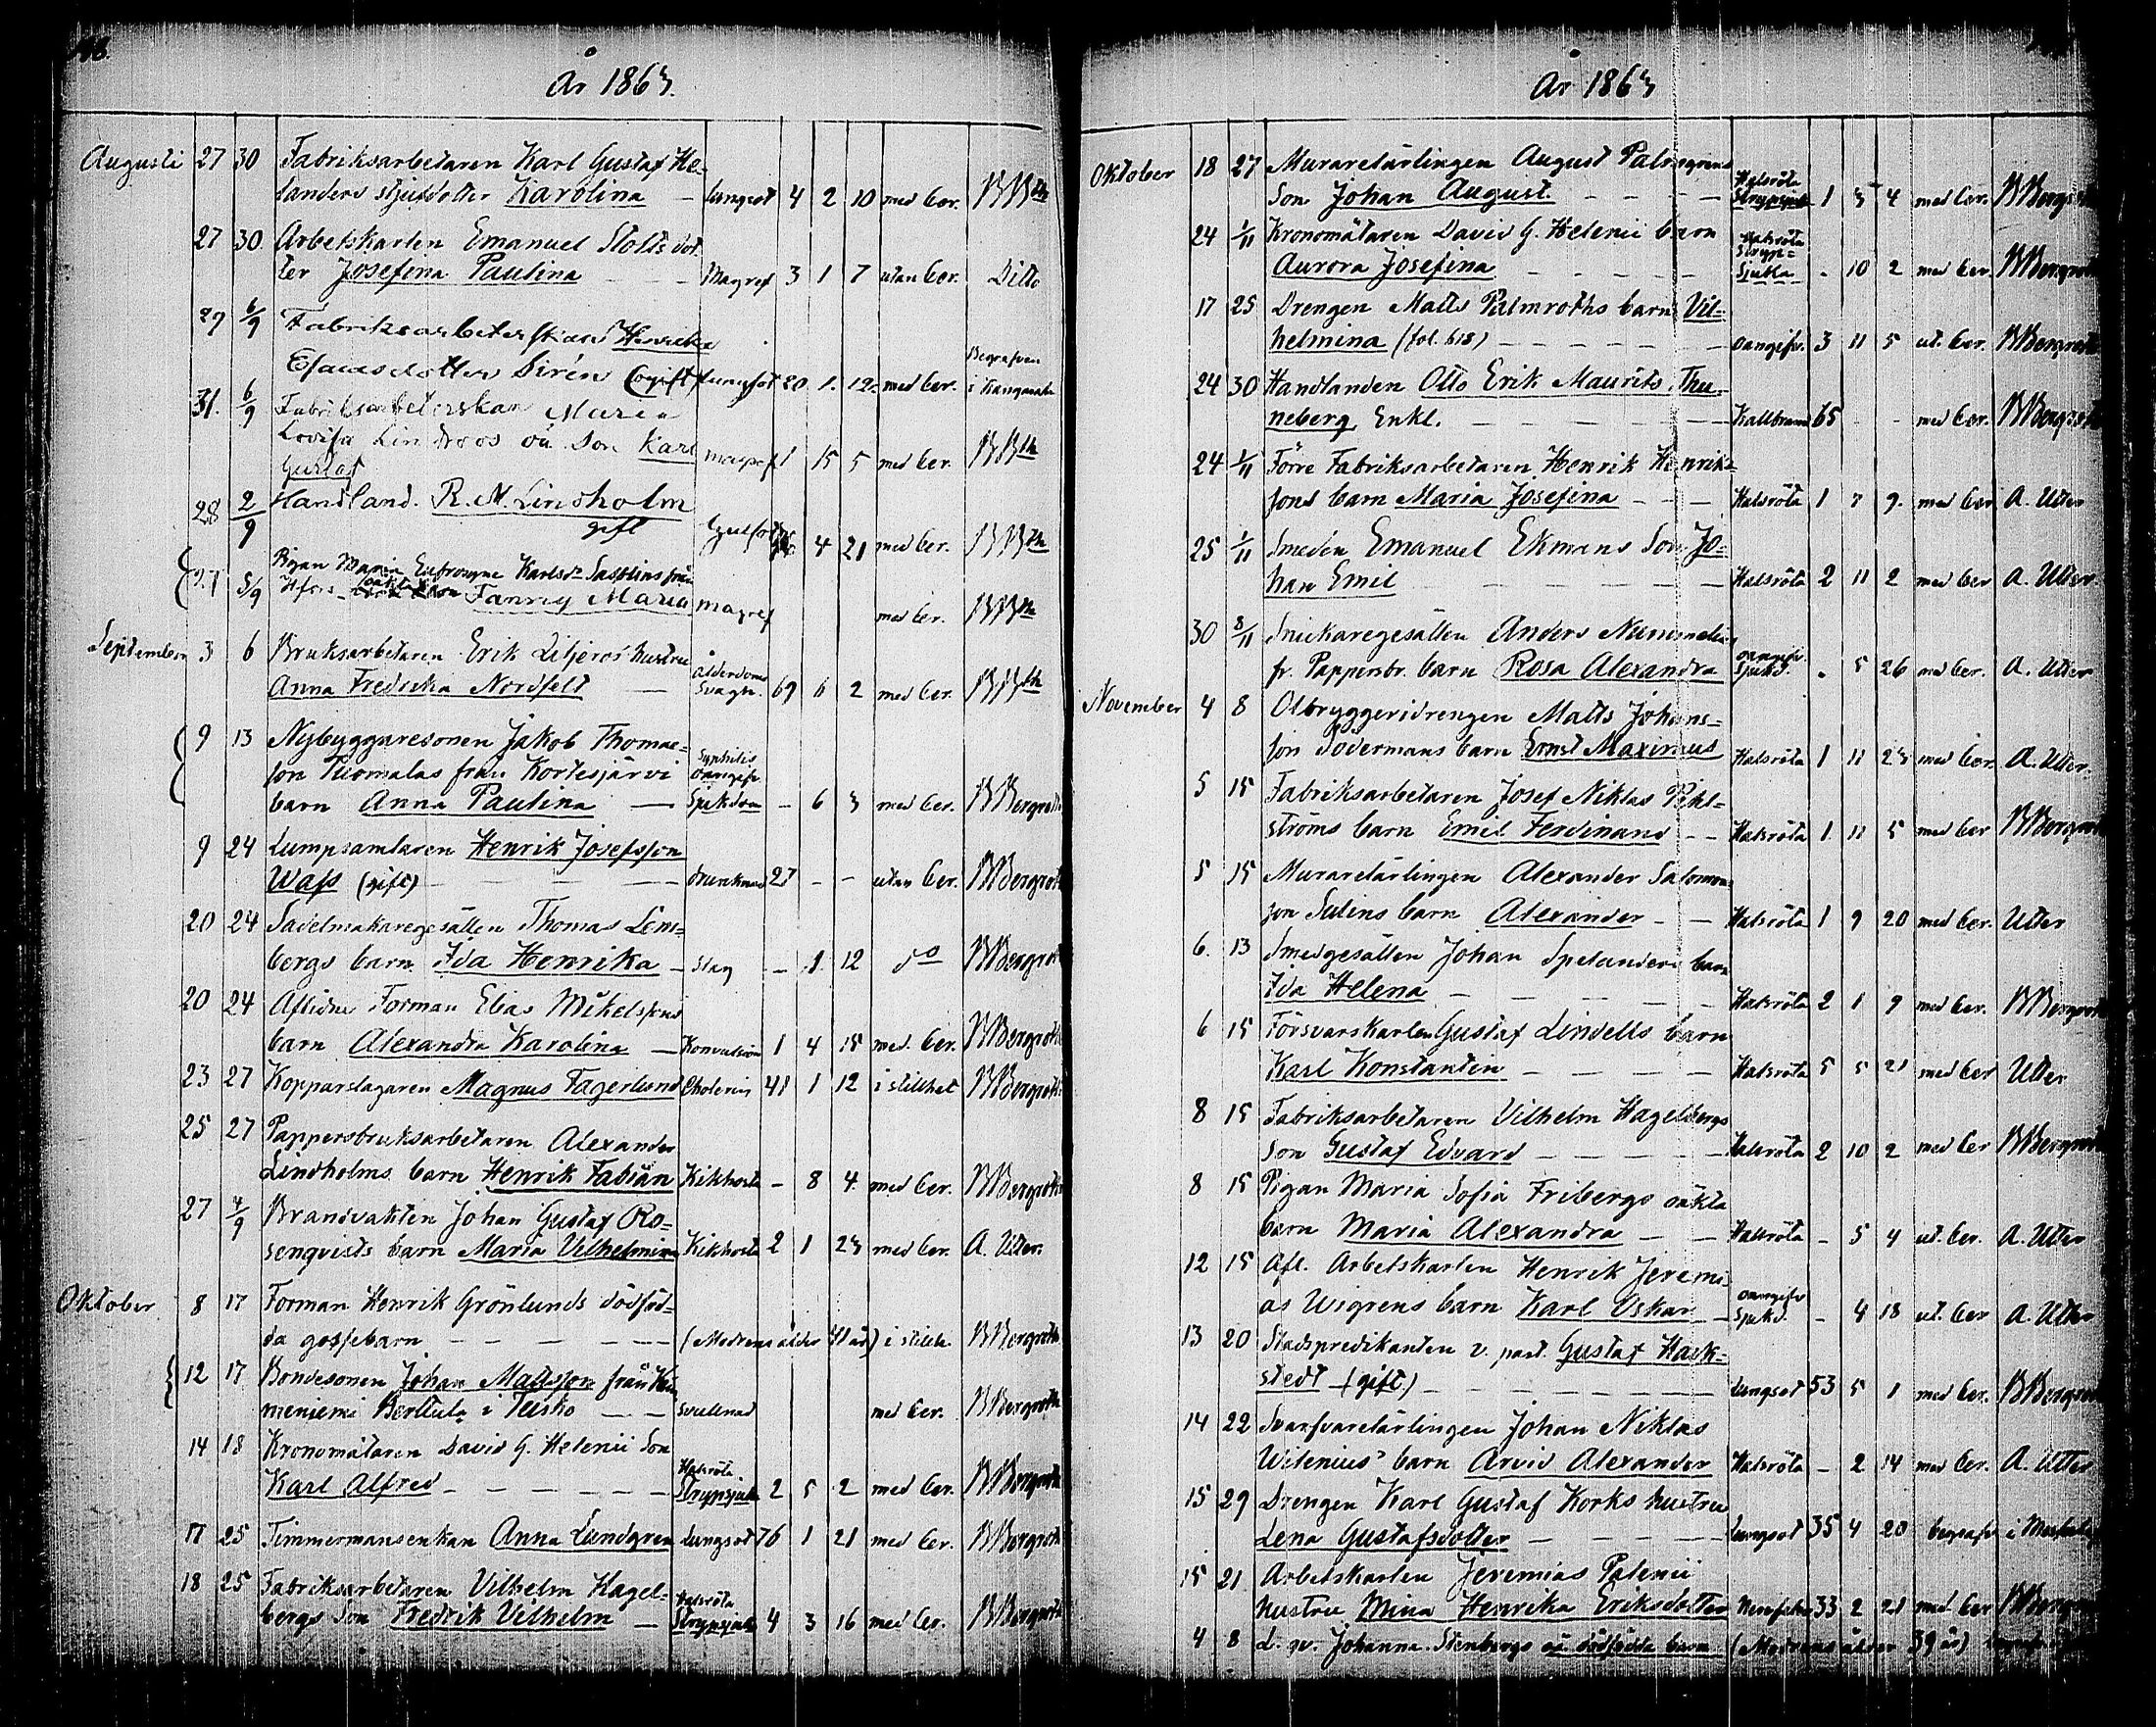 År 1863.
Augusti 27 30 Fabriksarbetaren Karl Gustaf He-
landers stjufdotter Karolina - lungsot 4 2 10 med cer. BBth
27 30 Arbetskarlen Emanuel Stolts dot
ter Josefina Paulina Magref 3 1 7 utan cer. Ditto
29 6/9 Fabriksarbeterskan Henrika
Esaiasdotter Sirén (ogift) lungsot 20. 1. 12. med cer. Begrafven i Kangasala
31. 6/9 Fabriksarbeterskan Maria
Lovisa Lindroos oä. Son Karl magref 1 15 5 med cer. BBth
Gustaf
28 2/9 Handland. R. M. Lindholm
gift 4 21 med cer. BBth
27 5/9 Pigan Maria Eufrosyne Karlsdr från
Hfors Fanny Maria magref med cer. BBth
September 3 6 Bruksarbetaren Erik Liljeros hustru
Anna Fredrika Nordfelt ålderdoms Svagh. 69 6 2 med cer. BBth
9 13 Nybyggaresonen Jakob Thomas-
son Tuomalas från Kortesjärvi
barn Anna Paulina Syphilis oangifv. Sjukdom - 6 3 med cer. BBergroth
9 24 Lumpsamlaren Henrik Josefsson
Wass (gift) drunknad 27 - - utan cer. BBergroth
20 24 Sadelmakaregesällen Thomas Lem-
bergs barn Ida Henrika - Slag - 1 12 do BBergroth
20 24 Aflidne Forman Elias Mikelssons
barn Alexandra Karolina - Konvulsion 1 4 15 med. cer. BBergroth
23 27 Kopparslagaren Magnus Fagerlund Cholerin 41 1 12 i stillhet BBergroth
25 27 Pappersbruksarbetaren Alexander
Lindholms barn Henrik Fabian Kikhosta - 8 4. med cer. BBergroth
27 4/9 Brandvakten Johan Gustaf Ro-
senqvists barn Maria Vilhelmina Kikhosta 2 1 23 med cer. A. Utter.
Oktober 8 17 Forman Henrik Grönlunds dödföd-
da gossebarn (Modrens ålder 41 år) i stillh. BBergroth
12 17 Bondesonen Johan Mattsson från
meniemi Berttula i Teisko svullnad med cer. BBergroth
14 18 Kronomätaren David G. Helenii Son
Karl Alfred Halsröta Strypsjuka 2 5 2 med cer. BBergroth
17 25 Timmermansenkan Anna Lundgren Lungsot 76 1 21 med cer. BBergroth
18 25 Fabriksarbetaren Vilhelm Hagel-
bergs Son Fredrik Vilhelm Halsröta Strypsjuka 4 3 16 med cer. BBergroth
År 1863
Oktober 18 27 Murarelärlingen August Palmgrens
Son Johan August Halsröta Strypsjuka 1 3 4 med cer. BBergroth
24 1/11 Kronomätaren David G. Helenii barn
Aurora Josefina Halsröta Stryp-sjuka - 10 2 med cer. BBergroth
17 25 Drengen Matts Palmroths barn Vil-
helmina (fol. 618) oangifv. 3 11 5 ut. cer. BBergroth
24 30 Handlanden Otto Erik Maurits Thu-
neberg, Enkl. Kallbrand 65 - - med cer. BBergroth
24 1/11 Förre Fabriksarbetaren Henrik Henriks-
sons barn Maria Josefina Halsröta 1 7 9. med cer A. Utter
25 1/11 Smeden Emanuel Ekmans Son Jo-
han Emil Halsröta 2 11 2 med cer A. Utter.
30 8/11 Snickaregesällen Anders Nummelin
fr. Pappersbr. barn Rosa Alexandra oangifv. Sjukd. - 5 26 med cer. A. Utter
November 4 8 Ölbryggeridrengen Matts Johans-
son Södermans barn Ernst Maximus Halsröta 1 11 23 med cer. A. Utter.
5 15 Fabriksarbetaren Josef Niklas Pihl-
ströms barn Emil Ferdinand Halsröta 1 11 5 med cer BBergroth
5 15 Murarelärlingen Alexander Salomons-
son Sulins barn Alexander Halsröta 1 9 20 med cer. Utter
6. 13 Smedgesällen Johan Spelanders barn
Ida Helena Halsröta 2 1 9 med cer. BBergroth
6 15 Försvarskarlen Gustaf Lindells barn
Karl Konstantin Halsröta 5 5 21 med cer Utter
8 15 Fabriksarbetaren Vilhelm Hagelbergs
Son Gustaf Edvard Halsröta 2 10 2 med cer BBergroth
8 15 Pigan Maria Sofia Fribergs oäkta
barn Maria Alexandra Halsröta - 5 4 ut. cer. A. Utter
12 15 Afl. Arbetskarlen Henrik Jeremi-
as Wigrens barn Karl Oskar oangifv Sjukd. - 4 18 ut. cer A. Utter
13 20 Stadspredikanten v. past. Gustaf Hack-
stedt (gift) Lungsot 53 5 1 med cer. BBergroth
14 22 Svarfvarelärlingen Johan Niklas
Wilenius' barn Arvid Alexander Halsröta - 2 14 med cer. A. Utter
15 29 Drengen Karl Gustaf Korks hustru
Lena Gustafsdotter Lungsot 35 4 20 begrafv. i
15 21 Arbetskarlen Jeremias Palenii
hustru Mina Henrika Eriksdotter 33 2 21 med cer BBergroth
4 8 L. qv. Johanna Stenbergs oä dödfödda barn (Modrens ålder 39 år)